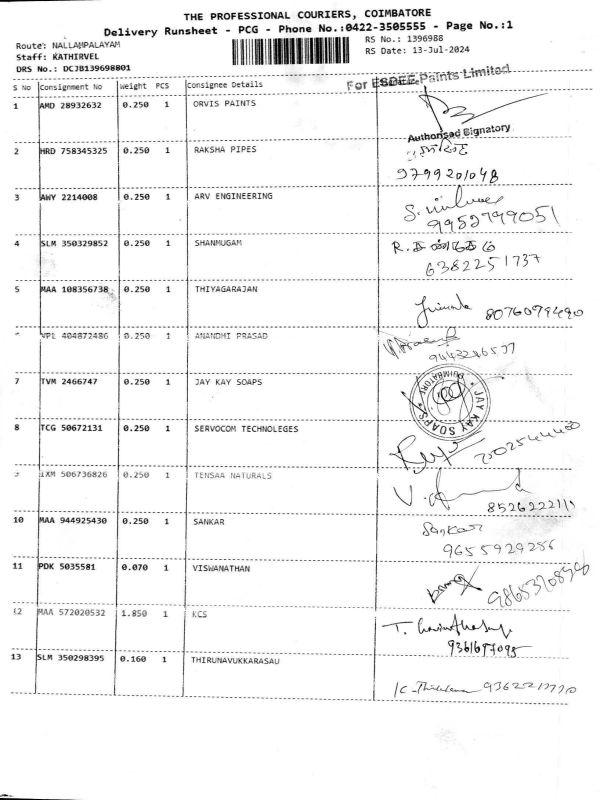 THE PROFESSIONAL COURIERS, COIMBATORE
Delivery Runsheet - PCG - Phone No.:0422-3505555 - Page No.:1
Route: NALLAMPALAYAM RS No.: 1396988
Staff: KATHIRVEL RS Date: 13-Jul-2024
DRS No.: DCJB139698801
S No Consignment No Weight PCS Consignee Details
For ESDEE Paints Limited
1 AMD 28932632 0.250 1 ORVIS PAINTS
Authorised Signatory
2 HRD 758345325 0.250 1 RAKSHA PIPES
9799201048
3 AWY 2214008 0.250 1 ARV ENGINEERING
9952799051
4 SLM 350329852 0.250 1 SHANMUGAM
6382251737
5 MAA 108356738 0.250 1 THIYAGARAJAN
8076099490
6 VPL 404872486 0.250 1 ANANDHI PRASAD
7 TVM 2466747 0.250 1 JAY KAY SOAPS
* JAY KAY SOAPS * COIMBATORE
8 TCG 50672131 0.250 1 SERVOCOM TECHNOLEGES
9 IXM 506736826 0.250 1 TENSAA NATURALS
10 MAA 944925430 0.250 1 SANKAR
Sankar
9655929286
11 PDK 5035581 0.070 1 VISWANATHAN
12 MAA 572020532 1.850 1 KCS
13 SLM 350298395 0.160 1 THIRUNAVUKKARASAU